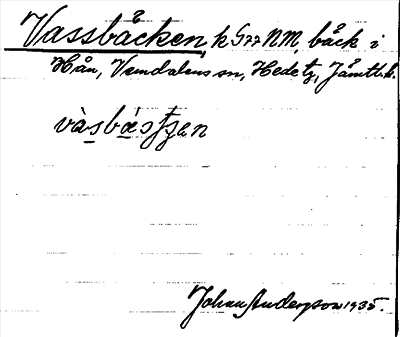 Vassbäcken, k 577 NM, bäck i
Hån, Vemdalens sn, Hede tg, Jämtl. l.
Johan Anderson 1935.